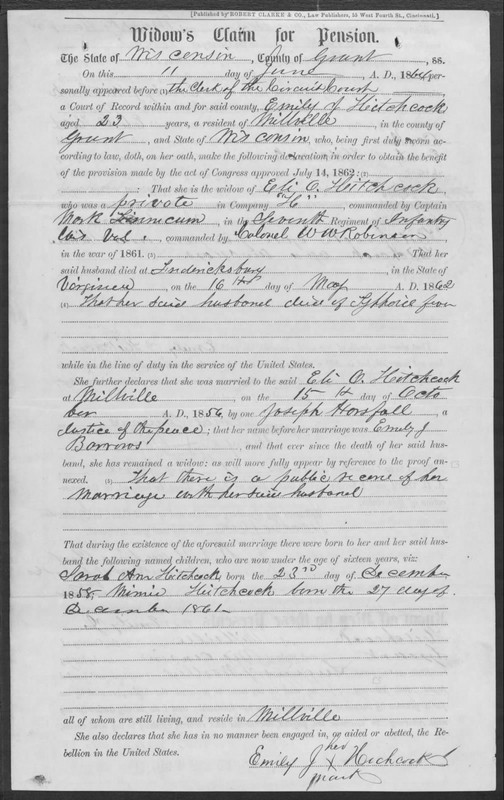 [Published by ROBERT CLARKE & CO., Law Publishers, 55 West Fourth St., Cincinnati.]
Widow's Claim for Pension.
The State of Wisconsin, County of Grant, ss.
On this 11 day of June, A. D., 1864 per-
sonally appeared before (1) the Clerk of the Circuit Court
a Court of Record within and for said county, Emily J Hitchcock
aged 23 years, a resident of Millville, in the county of
Grant, and State of Wisconsin, who, being first duly sworn ac-
cording to law, doth, on her oath, make the following declaration, in order to obtain the benefit
of the provision made by the act of Congress approved July 14, 1862:
: That she is the widow of Eli O. Hitchcock,
who was a private in Company "H", commanded by Captain
Mark Finnicum, in the Seventh Regiment of Infantry
Wis Vol., commanded by Colonel W W Robinson
in the war of 1861. (3) That her
said husband died at Fredericksburg, in the State of
Virginia, on the 16th day of May A. D. 1862
(4) That her said husband died of Typhoid fever
while in the line of duty in the service of the United States.
She further declares that she was married to the said Eli O. Hitchcock
at Millville, on the 15th day of Octo
ber A. D., 1856, by one Joseph Horsfall, a
Justice of the peace; that her name before her marriage was Emily J
Barrows, and that ever since the death of her said hus-
band, she has remained a widow: as will more fully appear by reference to the proof an-
nexed. (5) That there is a public record of her
marriage with her said husband
That during the existence of the aforesaid marriage there were born to her and her said hus-
band the following named children, who are now under the age of sixteen years, viz:
Sarah Ann Hitchcock, born the 23rd day of December
1858 Hitchcock born the 27 day of
December 1861
all of whom are still living, and reside in Millville
She also declares that she has in no manner been engaged in, or aided or abetted, the Re-
bellion in the United States.
Emily J her x mark Hichcock